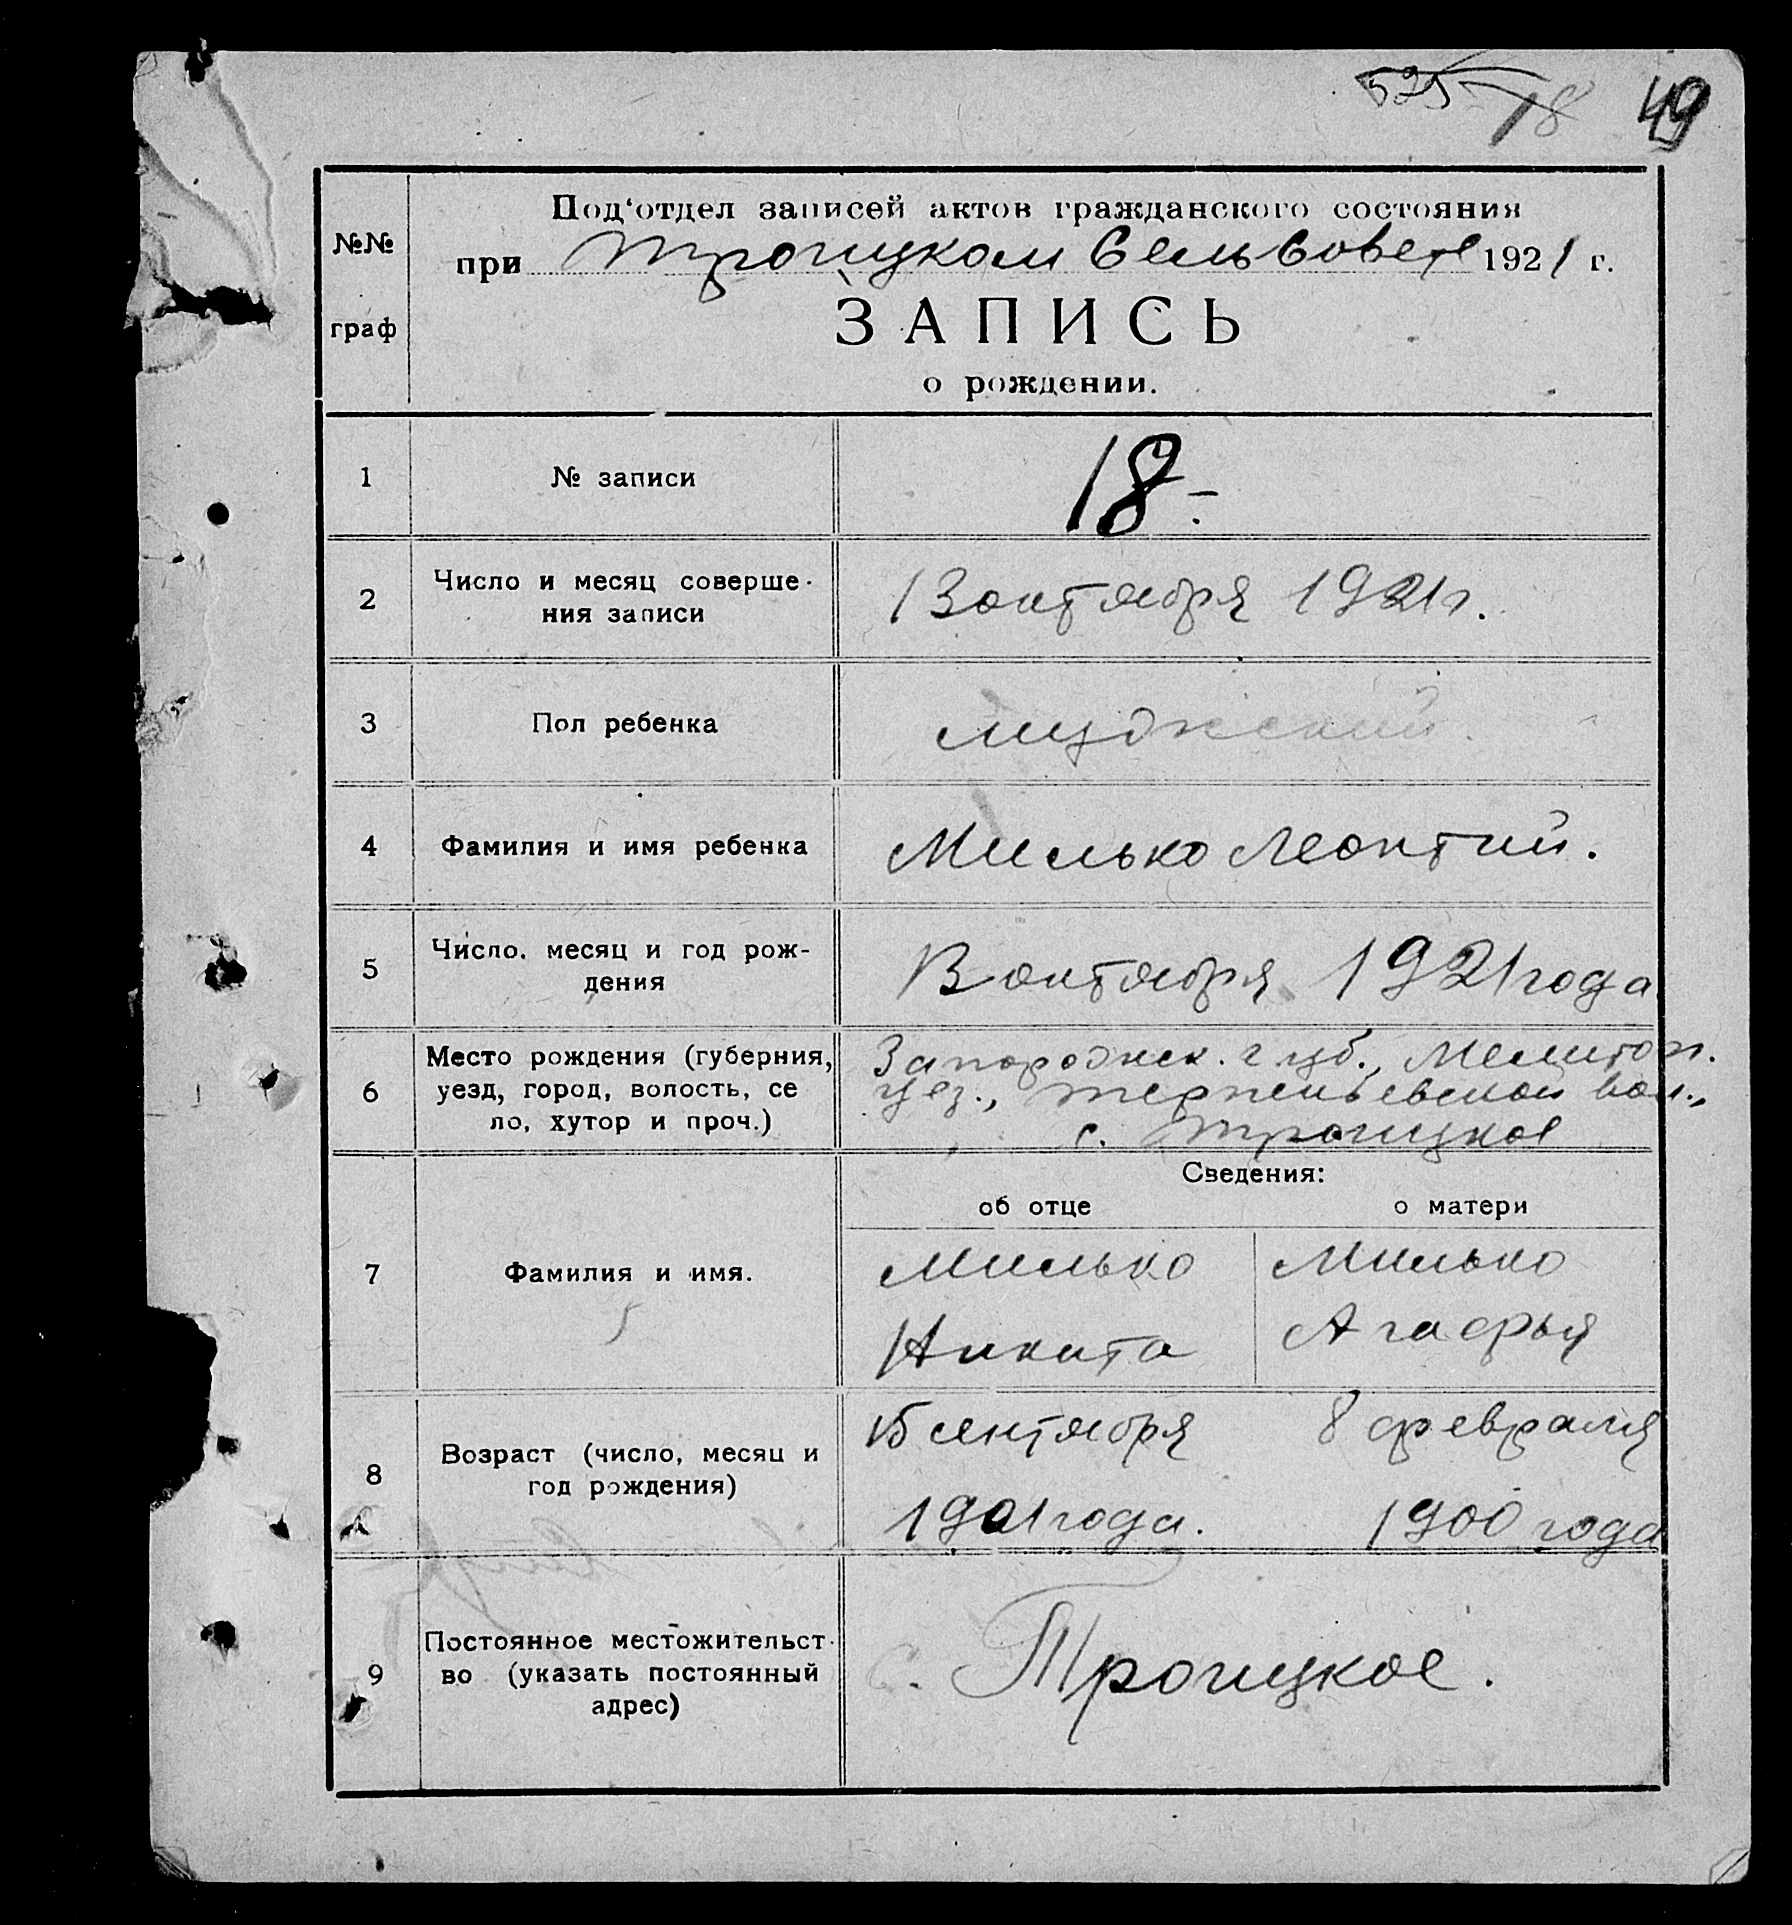 525 18 49
Под‘отдел записей актов гражданского состояния
№№
при Троицком Сельсовете 1921 г.
граф
ЗАПИСЬ
о рождении.
1 № записи 18.-
Число и месяц соверше-
2 13 октября 1921 г.
ния записи
3 Пол ребенка мужский.
4 Фамилия и имя ребенка Милько Леонтий.
Число, месяц и год рож-
5 13 октября 1921 года
дения
Место рождения (губерния, Запорожск. губ., Мелитоп.
6 уезд, город, волость, се уез., Терпеньевской вол.,
ло, хутор и проч.) с. Троицкое
Сведения:
об отце о матери
7 Фамилия и имя. Милько Милько
Никита Агафья
15 сентября 8 февраля
8 Возраст (число, месяц и
год рождения)
1901 года. 1900 года
Постоянное местожительст-
9 во (указать постоянный с. Троицкое.
адрес)